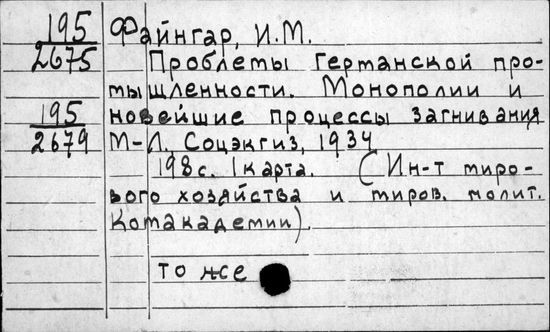 195
2675
Файнгар, И.М.
Проблемы Германской про-
мышленности. Монополии и
195
2679
новейшие процессы загнивания
М-Л. Соцэкгиз, 1934
198 с. 1 карта. (Ин-т миро-
вого хозяйства и миров. полит.
Комакадемии).
то же